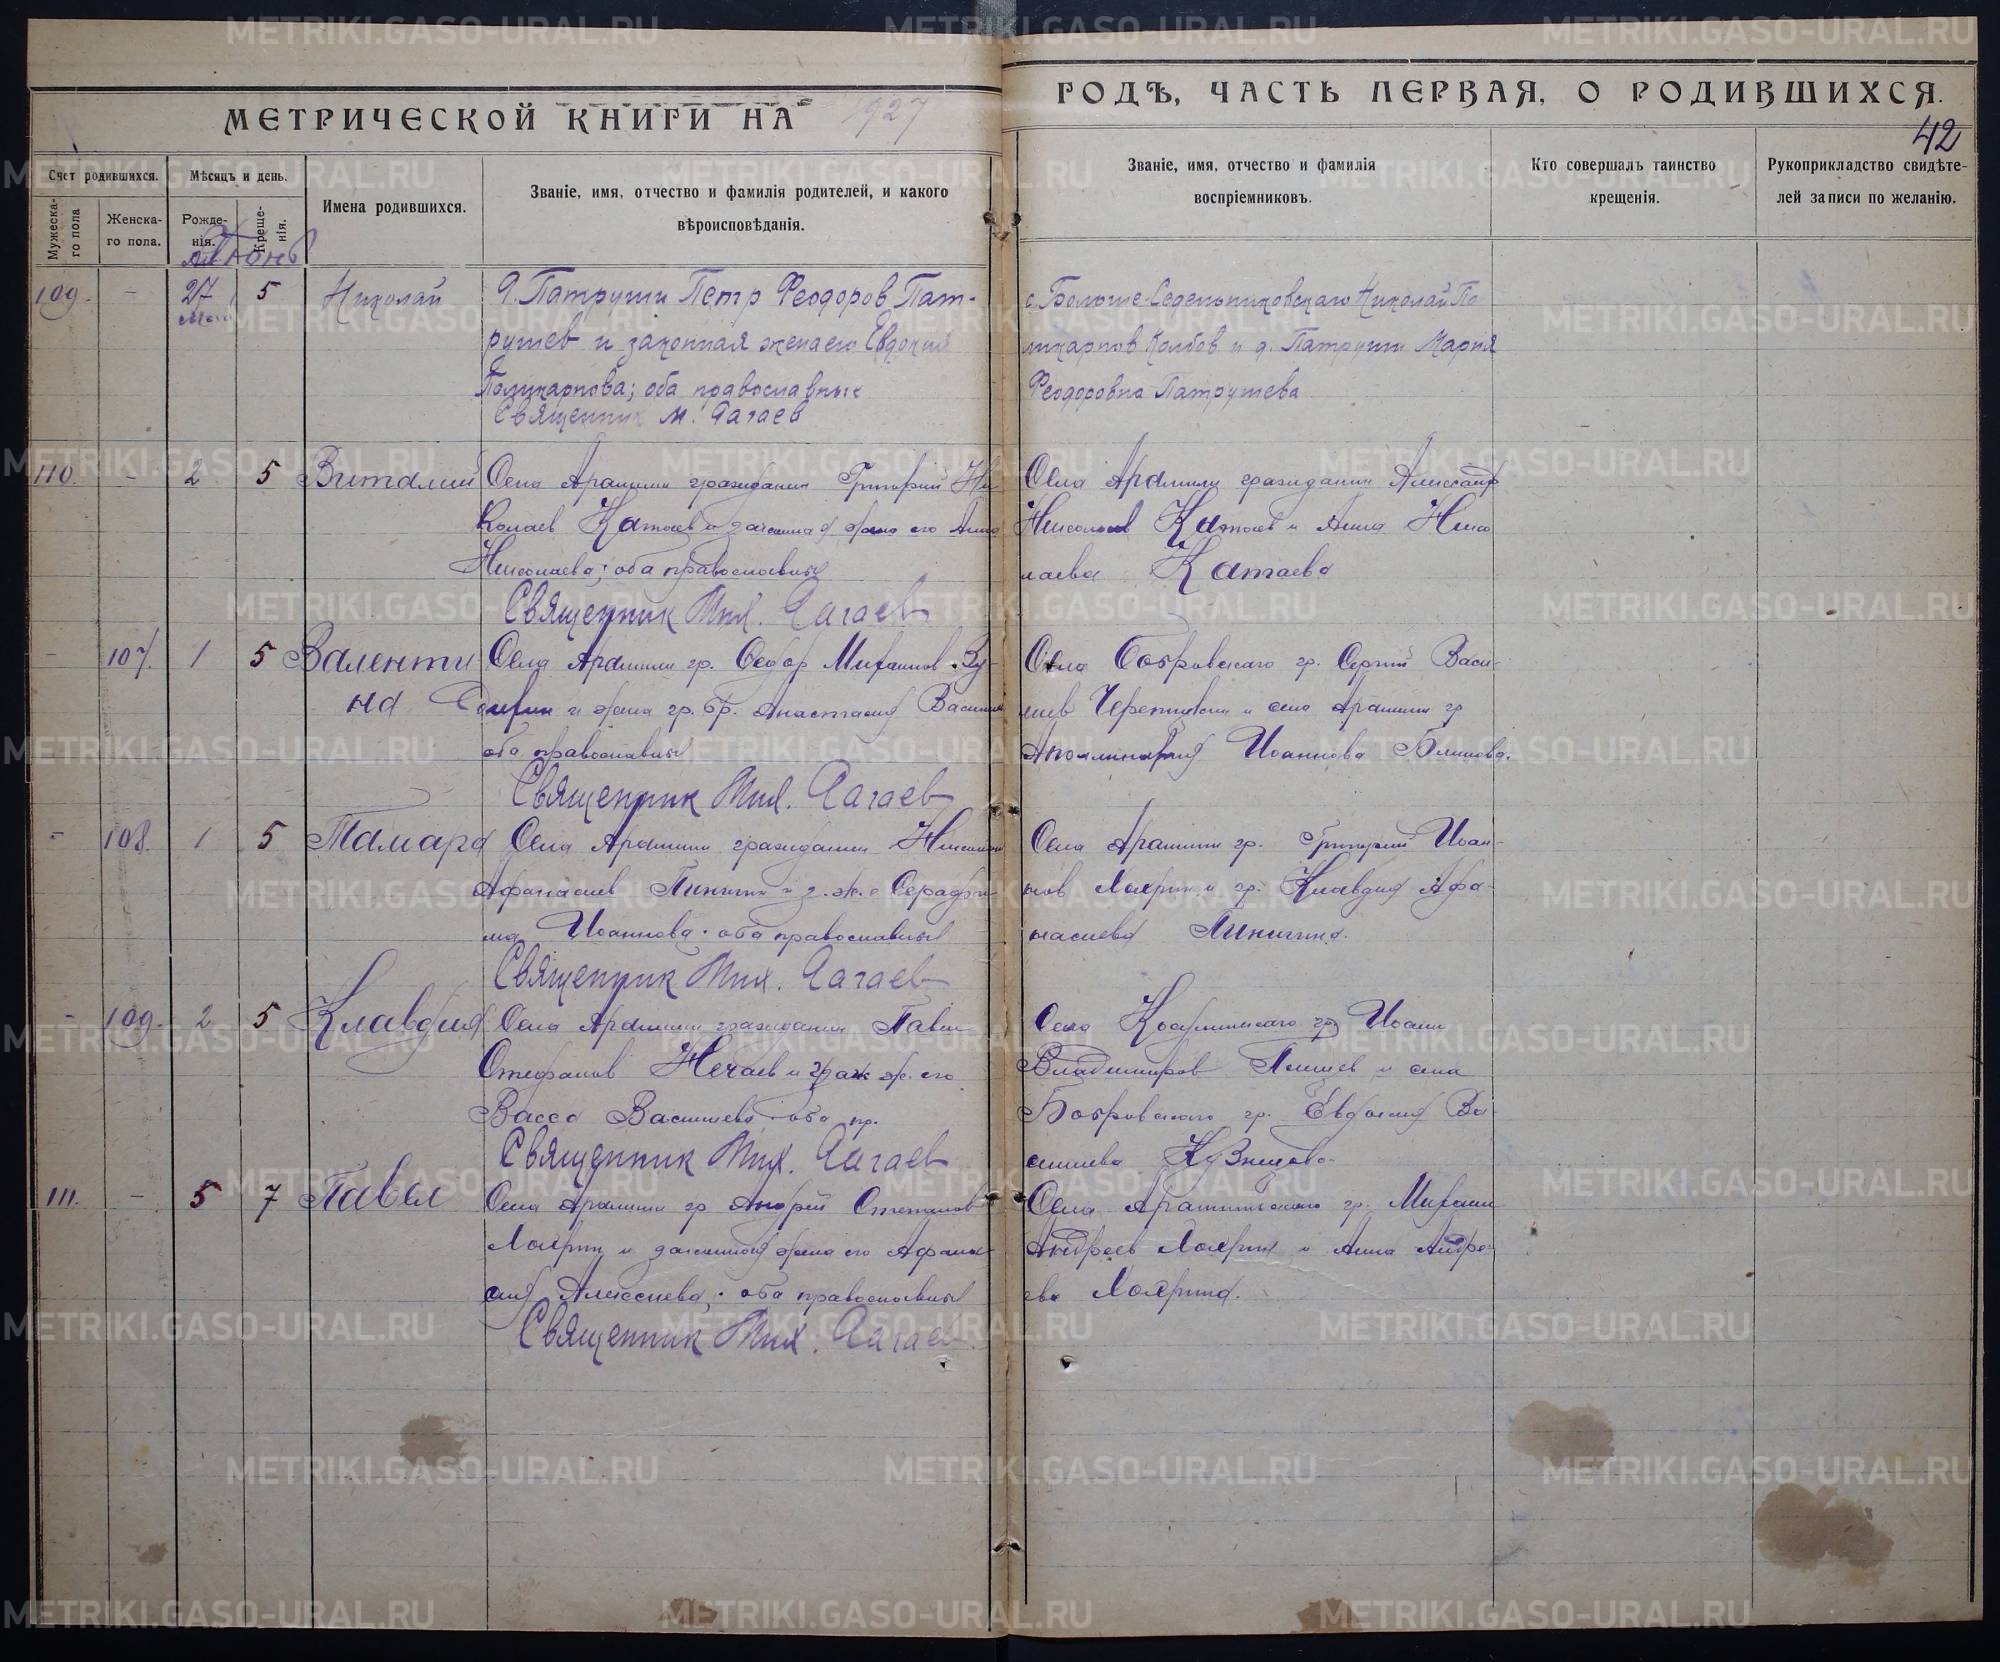 МЕТРИЧЕСКОЙ КНИГИ НА 1927
ГОДЪ, ЧАСТЬ ПЕРВАЯ, О РОДИВШИХСЯ.
42
Счет родившихся.
Мѣсяцъ и день.
Имена родившихся.
Званіе, имя, отчество и фамилія родителей, и какого
вѣроисповѣданія.
Званіе, имя, отчество и фамилія
воспріемниковъ.
Кто совершалъ таинство
крещенія.
Рукоприкладство свидѣте-
лей записи по желанію.
Мужеска-
го пола
Женска-
го пола.
Рожде-
нія.
Креще-
нія.
109. - 27 5 Николай
Мая
д. Патруши Петр Феодоров Пат-
рушев и законная жена его Евдокия
Поликарпова; оба православные
Священник М. Рагаев
с. Больше-Седельниковскаго Николай По
ликарпов Колбов и д. Патруши Мария
Феодоровна Патрушева
110. - 2 5 Виталий
Села Арамили гражданин Григорий Ни
колаев Катаев и законная жена его Анна
Николаева; оба православные
Священник Мих. Рагаев
Села Арамили гражданин Александр
Николаев Катаев и Анна Нико
лаева Катаева
- 107. 1 5 Валенти
на
Села Арамили гр. Феодор Михаилов
и жена гр. бр. Анастасия Васильев
оба православные
Священник Мих. Рагаев
Села Бобровскаго гр. Сергий Васи-
льев и села Арамили гр
Аполлинария Иоаннова Блинова.
- 108. 1 5 Тамара
Села Арамили гражданин Николай
Афанасиев Пинигин и з. ж. е Серафи-
ма Иоаннова. оба православные
Священник Мих. Рагаев
Села Арамили гр. Григорий Иоан-
нов Лаврин и гр. Клавдия Афа-
насиева Пинигина.
- 109. 2 5 Клавдия
Села Арамили гражданин Павел
Стефанов Нечаев и граж ж. его
Васса Васильева оба пр.
Священник Мих. Рагаев
Села гр. Иоанн
Владимиров и села
Бобровскаго гр. Евдокия Ва-
сильева Кузнецова.
111. - 5 7 Павел
Села Арамили гр Андрей Степанов
Лаврин и законная жена его Афана-
сия Алексеева; оба православные
Священник Мих. Рагаев
Села Арамильскаго гр. Михаил
Андреев Лаврин и Анна Андре-
ева Лаврина.
METRIKI.GASO-URAL.RU